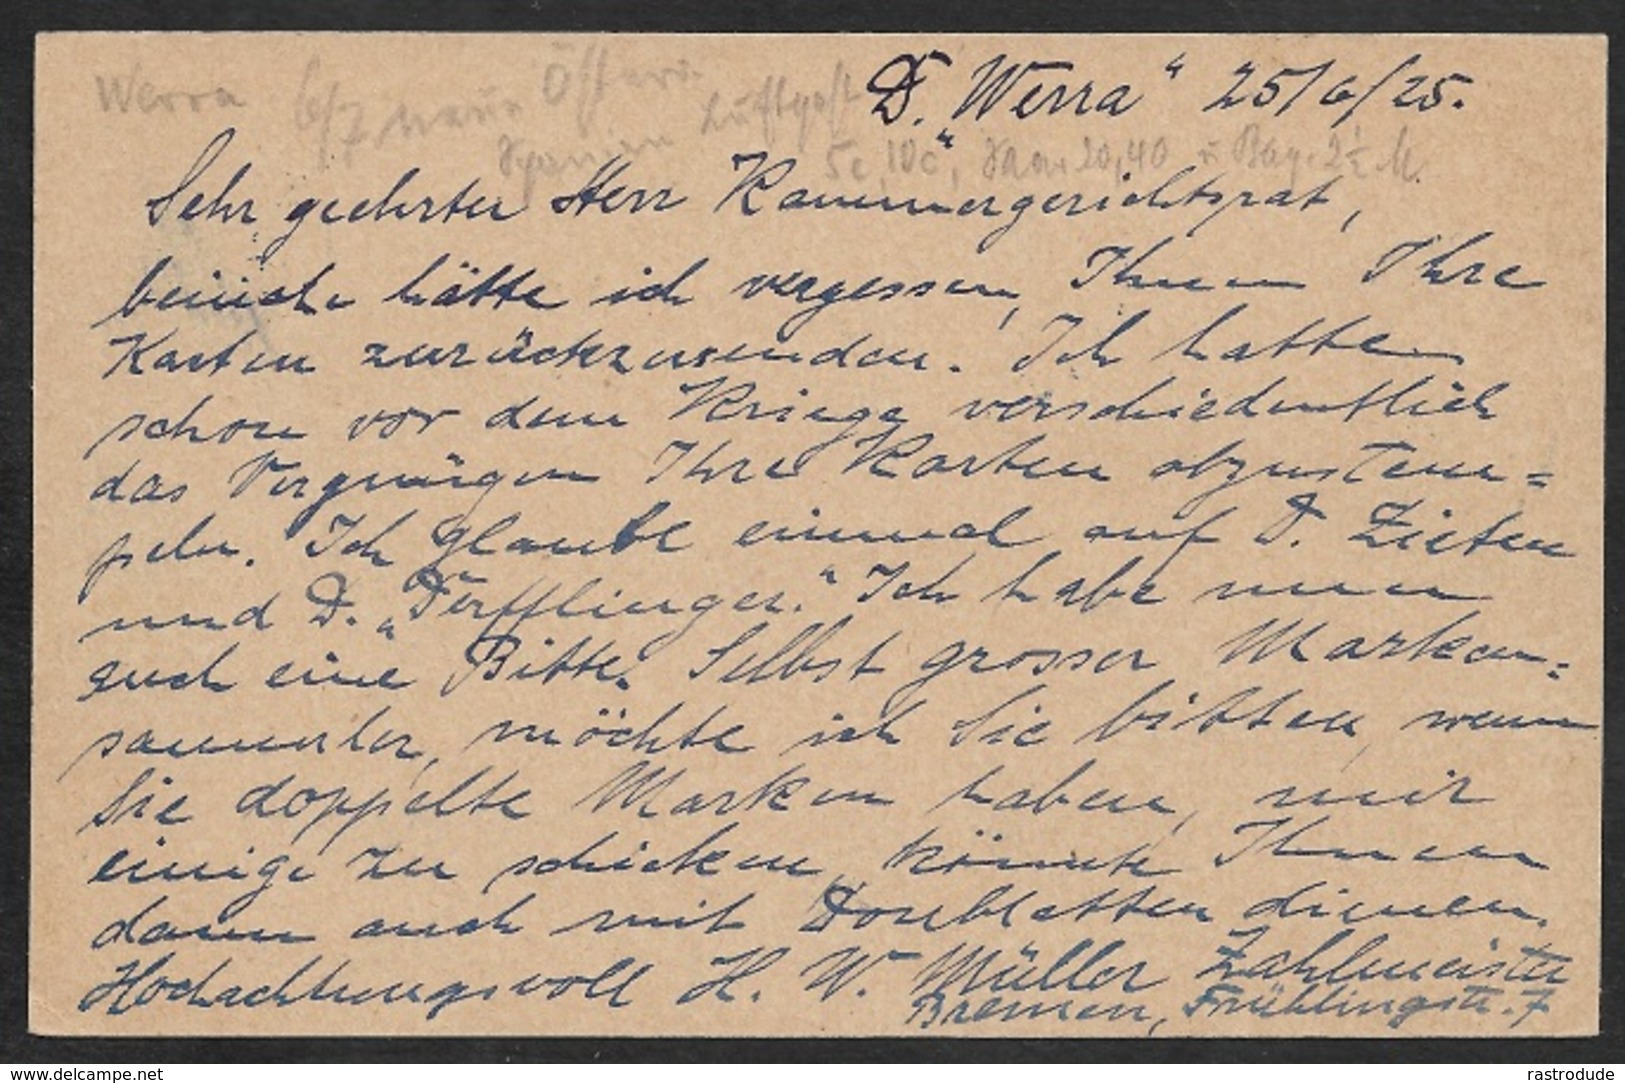 D. „Werra“ 25/6/25.
Werra 6/7 neue Österr.
Spanien Luftpost
5c, 10c, 20,40 u Bay. 2½ M.
Sehr geehrter Herr Kammergerichtsrat,
beinahe hätte ich vergessen, Ihnen Ihre
Karten zurückzusenden. Ich hatte
schon vor dem Kriege verschiedentlich
das Vergnügen Ihre Karten abzustem=
peln. Ich glaube einmal auf D. Zieten
und D. „Derfflinger.“ Ich habe nun
auch eine Bitte. Selbst grosser Marken=
sammler, möchte ich Sie bitten, wenn
Sie doppelte Marken haben, mir
einige zu schicken, könnte Ihnen
dann auch mit Doubletten dienen.
Hochachtungsvoll H. W. Müller Zahlmeister
Bremen, Frühlingstr. 7
delcampe.net
rastrodude